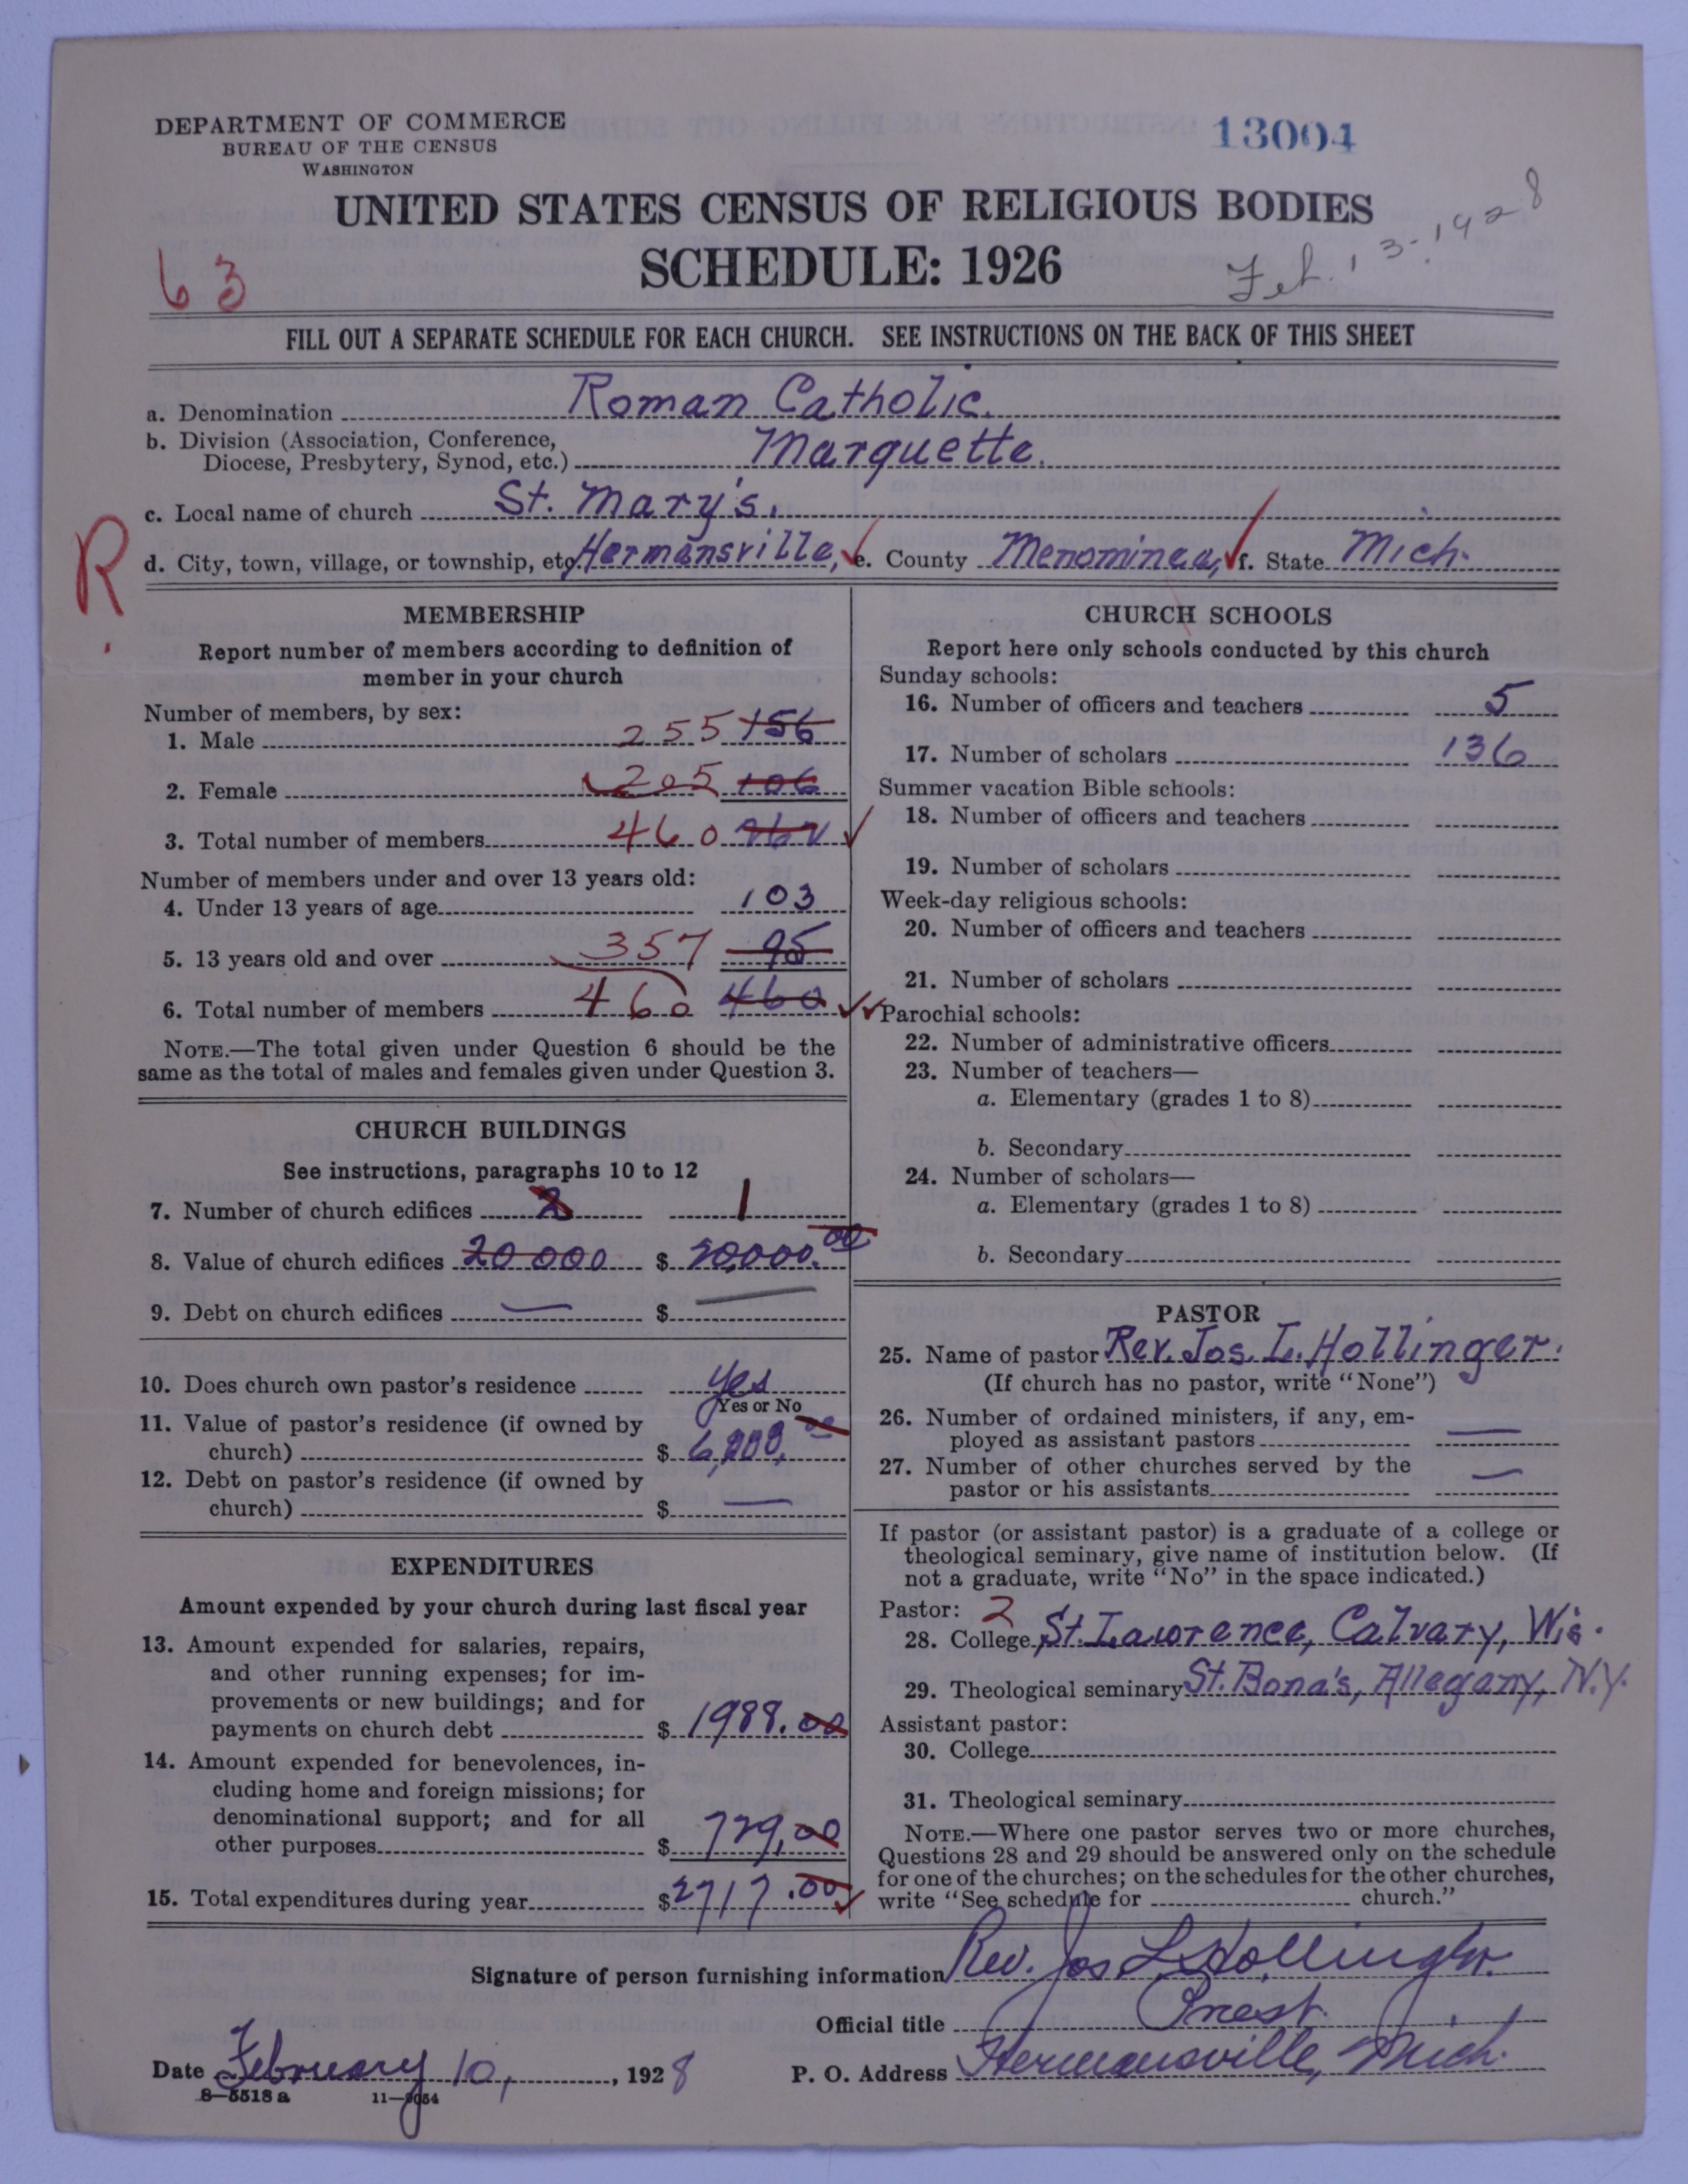 DEPARTMENT OF COMMERCE
BUREAU OF THE CENSUS
WASHINGTON
13004
UNITED STATES CENSUS OF RELIGIOUS BODIES
SCHEDULE: 1926
63
Feb. 13-1928
FILL OUT A SEPARATE SCHEDULE FOR EACH CHURCH. SEE INSTRUCTIONS ON THE BACK OF THIS SHEET
a. Denomination Roman Catholic.
b. Division (Association, Conference,
Diocese, Presbytery, Synod, etc.) Marquette.
c. Local name of church St. Mary's.
R.
d. City, town, village, or township, etc. Hermansville, e. County Menominee, f. State Mich.
MEMBERSHIP
Report number of members according to definition of
member in your church
Number of members, by sex:
1. Male 255 156
2. Female 205 106
3. Total number of members 460 262
Number of members under and over 13 years old:
4. Under 13 years of age 103
5. 13 years old and over 357 95
6. Total number of members 460 460
NOTE.—The total given under Question 6 should be the
same as the total of males and females given under Question 3.
CHURCH BUILDINGS
See instructions, paragraphs 10 to 12
7. Number of church edifices 2 1
8. Value of church edifices 20 000 $ 20,000.00
9. Debt on church edifices — $ —
10. Does church own pastor's residence Yes
Yes or No
11. Value of pastor's residence (if owned by
church) $ 6,000.00
12. Debt on pastor's residence (if owned by
church) $ —
EXPENDITURES
Amount expended by your church during last fiscal year
13. Amount expended for salaries, repairs,
and other running expenses; for im-
provements or new buildings; and for
payments on church debt $ 1988.00
14. Amount expended for benevolences, in-
cluding home and foreign missions; for
denominational support; and for all
other purposes $ 729,00
15. Total expenditures during year $ 2717.00
CHURCH SCHOOLS
Report here only schools conducted by this church
Sunday schools:
16. Number of officers and teachers 5
17. Number of scholars 136
Summer vacation Bible schools:
18. Number of officers and teachers
19. Number of scholars
Week-day religious schools:
20. Number of officers and teachers
21. Number of scholars
Parochial schools:
22. Number of administrative officers
23. Number of teachers—
a. Elementary (grades 1 to 8)
b. Secondary
24. Number of scholars—
a. Elementary (grades 1 to 8)
b. Secondary
PASTOR
25. Name of pastor Rev. Jos. L. Hollinger.
(If church has no pastor, write "None")
26. Number of ordained ministers, if any, em-
ployed as assistant pastors —
27. Number of other churches served by the
pastor or his assistants —
If pastor (or assistant pastor) is a graduate of a college or
theological seminary, give name of institution below. (If
not a graduate, write "No" in the space indicated.)
Pastor: 2
28. College St. Lawrence, Calvary, Wis.
29. Theological seminary St. Bona's, Allegany, N.Y.
Assistant pastor:
30. College
31. Theological seminary
NOTE.—Where one pastor serves two or more churches,
Questions 28 and 29 should be answered only on the schedule
for one of the churches; on the schedules for the other churches,
write "See schedule for church."
Signature of person furnishing information Rev. Jos L. Hollinger.
Official title Priest.
Date February 10, 1928 P. O. Address Hermansville, Mich.
8—5518 a 11—9054